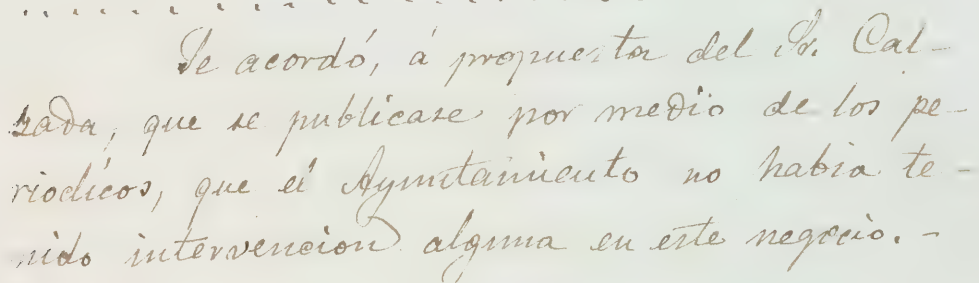 Se acordó, á propuesta del Sr. Cal-
zada, que se publicase por medio de los pe-
riodicos, que el Ayuntamiento no habia te-
nido intervencion alguna en este negocio. -